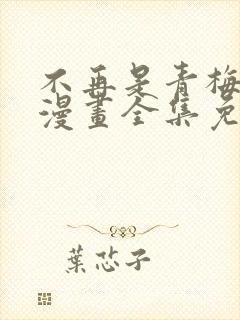 不再是青梅
漫畫全集免
葉芯子